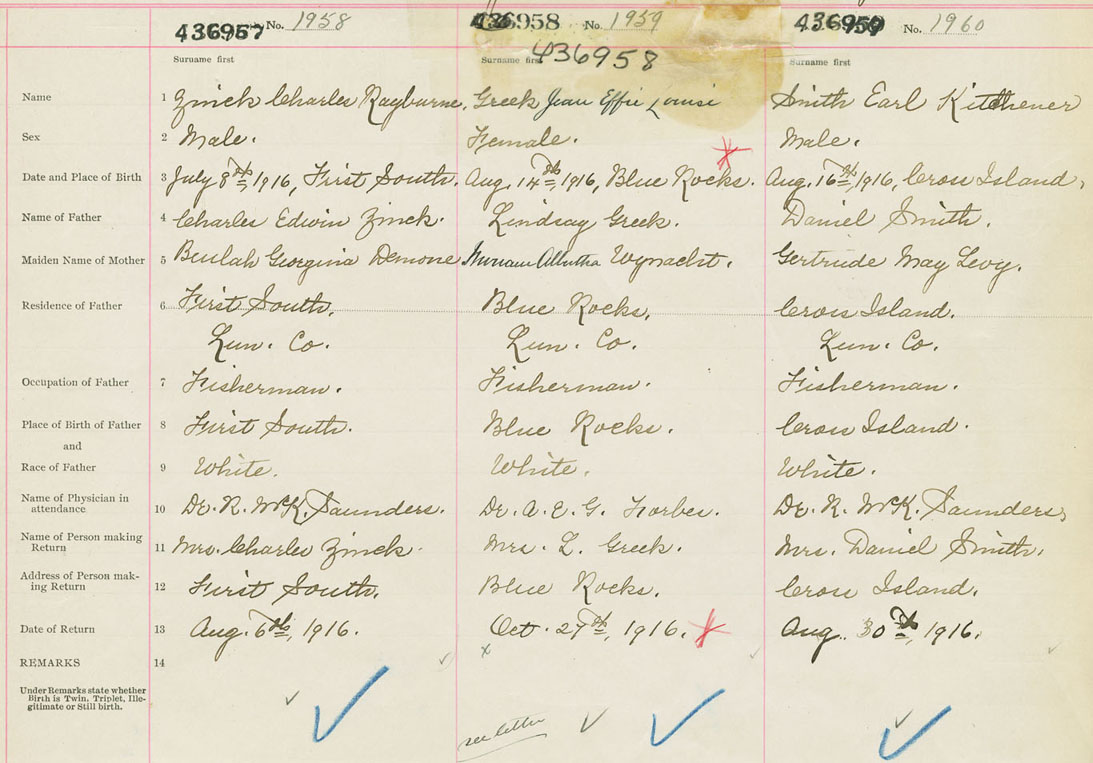 436957 No. 1958 436958 No. 1959 436959 No. 1960
436958
Surname first Surname first Surname first
Name 1 Zinck Charles Rayburne. Greek Jean Effie Louise Smith Earl Kitchener
Sex 2 Male. Female. Male.
Date and Place of Birth 3 July 8th, 1916, First South. Aug. 14th, 1916, Blue Rocks. Aug. 16th, 1916, Cross Island.
Name of Father 4 Charles Edwin Zinck. Lindsay Greek. Daniel Smith.
Maiden Name of Mother 5 Beulah Georgina Demone Wynacht. Gertrude May Levy.
Residence of Father 6 First South. Blue Rocks. Cross Island.
Lun. Co. Lun. Co. Lun. Co.
Occupation of Father 7 Fisherman. Fisherman. Fisherman.
Place of Birth of Father 8 First South. Blue Rocks. Cross Island.
and
Race of Father 9 White. White. White.
Name of Physician in
attendance 10 Dr. R. McK. Saunders. Dr. A. E. G. Forbes. Dr. R. McK. Saunders,
Name of Person making
Return 11 Mrs. Charles Zinck. Mrs. L. Greek. Mrs. Daniel Smith.
Address of Person mak-
ing Return 12 First South. Blue Rocks. Cross Island.
Date of Return 13 Aug. 6th, 1916. Oct. 27th, 1916. Aug. 30th, 1916.
REMARKS 14 x
Under Remarks state whether
Birth is Twin, Triplet, Ille-
gitimate or Still birth.
see letter